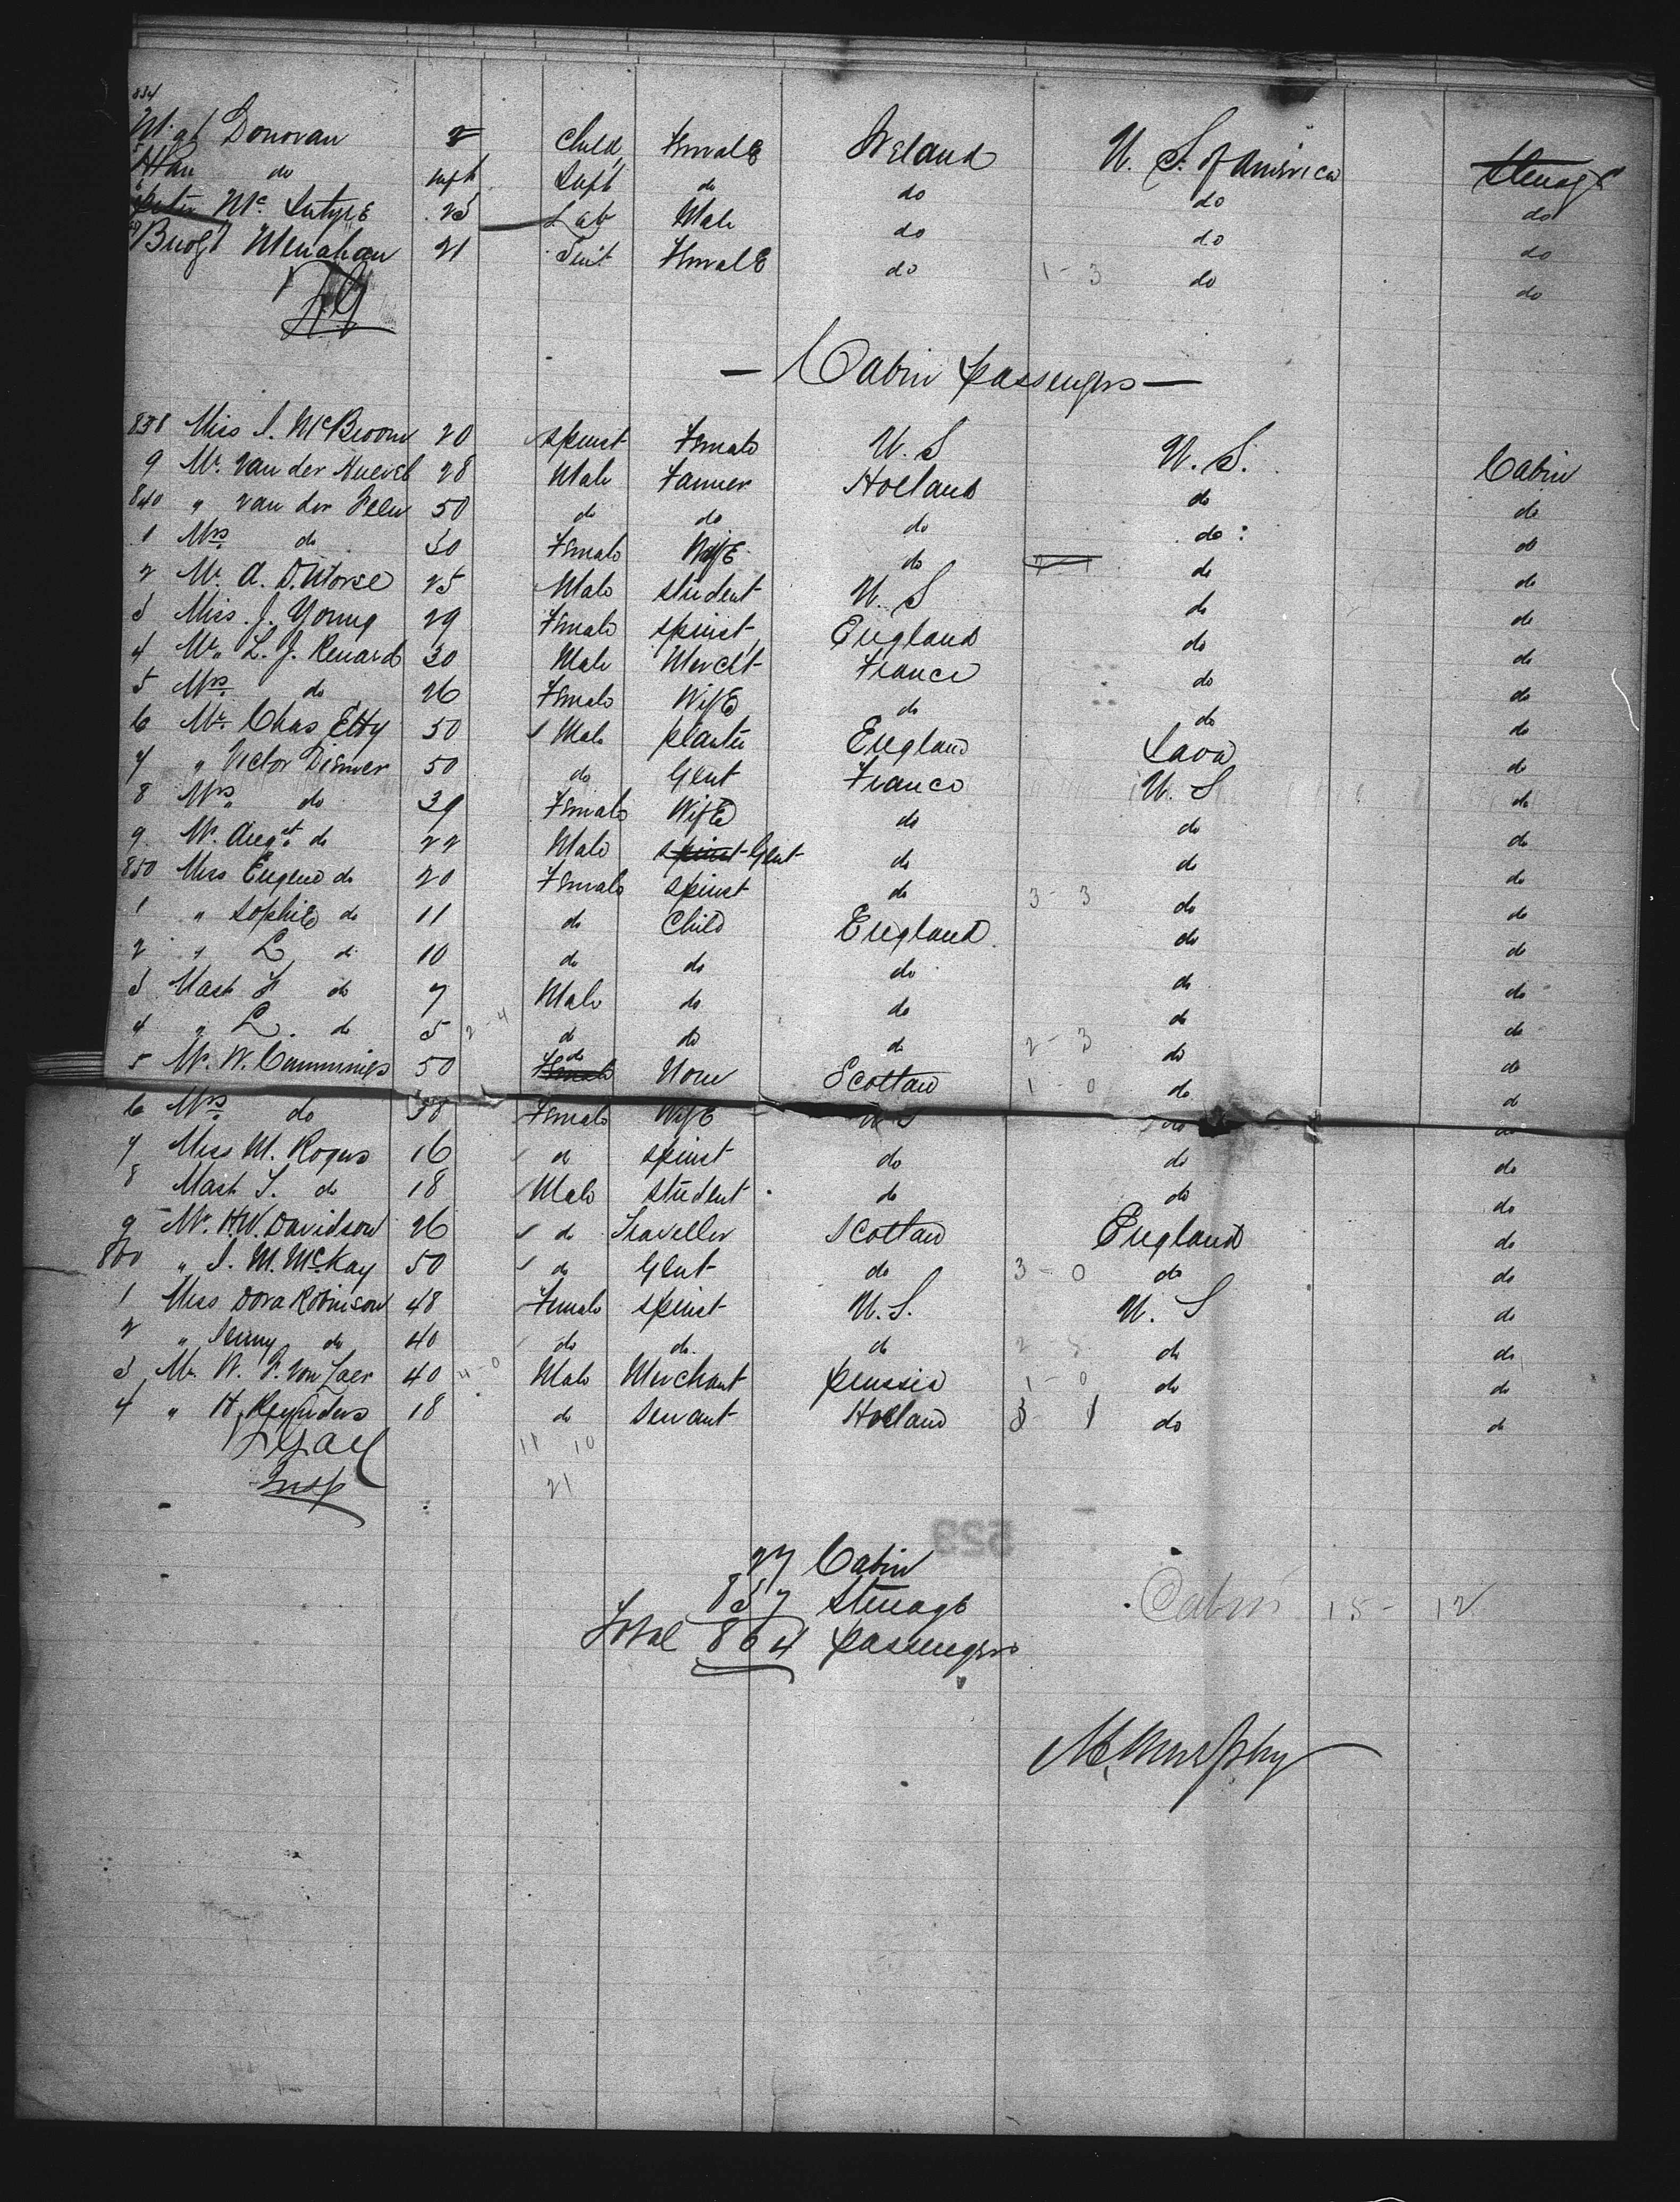 834
Donovan Child, Female Ireland U. S. of America Steerage
do Inft Inft do do do do
Mc Intyre 25 Lab Male do do do
Menahan 21 Female do 1-3 do do
— Cabin passengers —
838 Miss J. McBroom 20 Spinst Female U. S U. S. Cabin
9 Mr. Van der Huevel 28 Male Farmer Holland do do
840 " van der 50 do do do do: do
1 Mrs. do 30 Female Wife do do do
2 Mr. A. D. Morse 25 Male Student U. S do do
3 Miss. J. Young 29 Female Spinst England do do
4 Mr. L. J. Renard 30 Male Mercht France do do
5 Mrs. do 26 Female Wife do do do
6 Mr. Chas Etty 50 Male planter England Java do
7 " Victor Dismer 50 do Gent France U. S do
8 Mrs. do 39 Female Wife do do do
9. Mr. Augst. do 22 Male Spinst Gent do do do
850 Miss Eugene do 20 Female Spinst do 3-3 do do
1 " Sophie do 11 do Child England. do do
2 " L do 10 do do do do do
3 Mast F do 7 Male do do do do
4 " L. do 5 2-4 do do do 2-3 do do
5 Mr. W. Cummings 50 Female do None Scotland 1-0 do do
6 Mrs. do 38 Female Wife U S do do
7 Miss M. Rogers 16 do Spinst do do do
8 Mast J. do 18 Male Student do do do
9 Mr. H. W. Davidson 26 do Traveller Scotland England do
860 " J. M. McKay 50 do Gent do 3-0 do do
1 Miss Dora Robinson 48 Female Spinst U. S. U. S do
2 " Jenny do 40 do do. do do do
3 Mr. W. F. Von Laer 40 4-0 Male Merchant Prussia 1-0 do do
4 " H. Reynders 18 do Servant Holland 3-1 do do
11 10
Insp
21
523
27 Cabin
837 Steerage Cabin 15-12
Total 864 passengers
M. Murphy